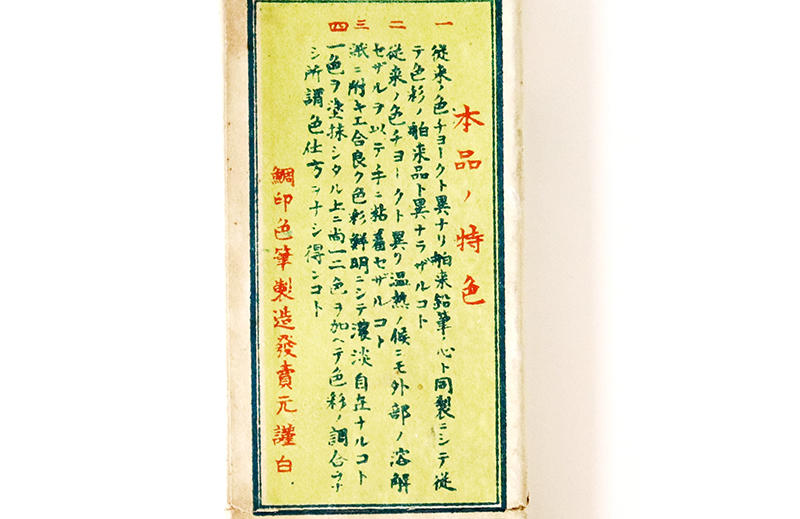 本品ノ特色
一 従来ノ色チョークト異ナリ舶来鉛筆ノ心ト同製ニシテ従
テ色彩ノ舶来品ト異ナラザルコト
二 従来ノ色チョークト異リ温熱ノ候ニモ外部ノ溶解
セザルヲ以テ手ニ粘着セザルコト
三 紙ニ附キ工合良ク色彩鮮明ニシテ濃淡自在ナルコト
四 一色ヲ塗抹シタル上ニ尚一二色ヲ加ヘテ色彩ノ調合ヲナ
シ所謂色仕方ヲナシ得ンコト
鯛印色筆製造發賣元謹白